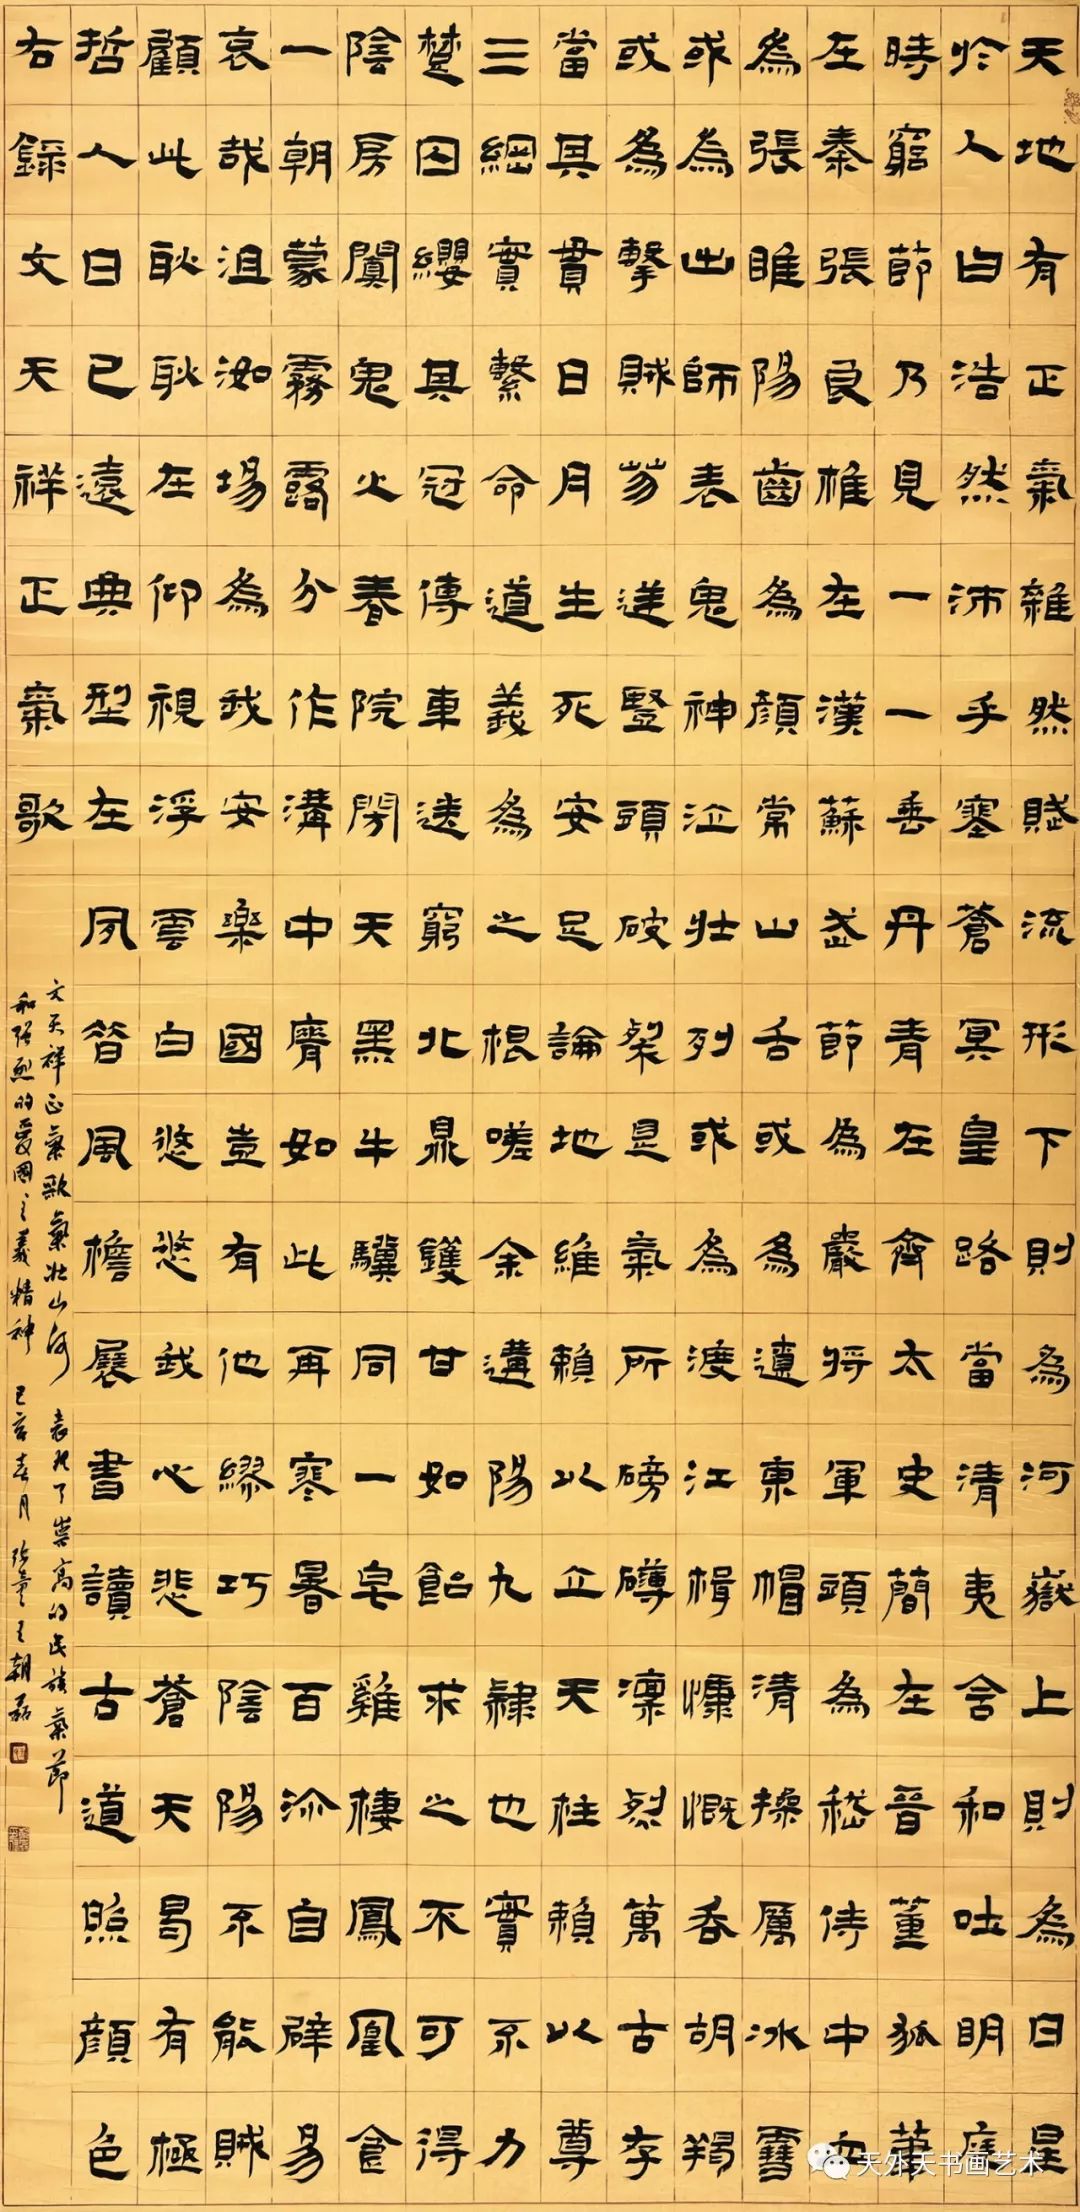 天地有正氣雜然賦流形下則為河嶽上則為日星
於人曰浩然沛乎塞蒼冥皇路當清夷含和吐明庭
時窮節乃見一一垂丹青在齊太史簡在晉董狐筆
在秦張良椎在漢蘇武節為嚴將軍頭為嵇侍中血
為張睢陽齒為顔常山舌或為遼東帽清操厲冰雪
或為出師表鬼神泣壯列或為渡江楫慷慨吞胡羯
或為擊賊笏逆豎頭破裂是氣所磅礴凜烈萬古存
當其貫日月生死安足論地維賴以立天柱賴以尊
三綱實繫命道義為之根嗟余遘陽九隸也實不力
楚囚纓其冠傳車送窮北鼎鑊甘如飴求之不可得
陰房闃鬼火春院閉天黑牛驥同一皂雞棲鳳凰食
一朝蒙霧露分作溝中瘠如此再寒暑百沴自辟易
哀哉沮洳場為我安樂國豈有他繆巧陰陽不能賊
顧此耿耿在仰視浮雲白悠悠我心悲蒼天曷有極
哲人日已遠典型在夙昔風檐展書讀古道照顔色
右錄文天祥正氣歌
文天祥正氣歌氣壯山河 表現了崇高的民族氣節
和强烈的愛國主義精神 己亥春月 朝磊
天外天书画艺术